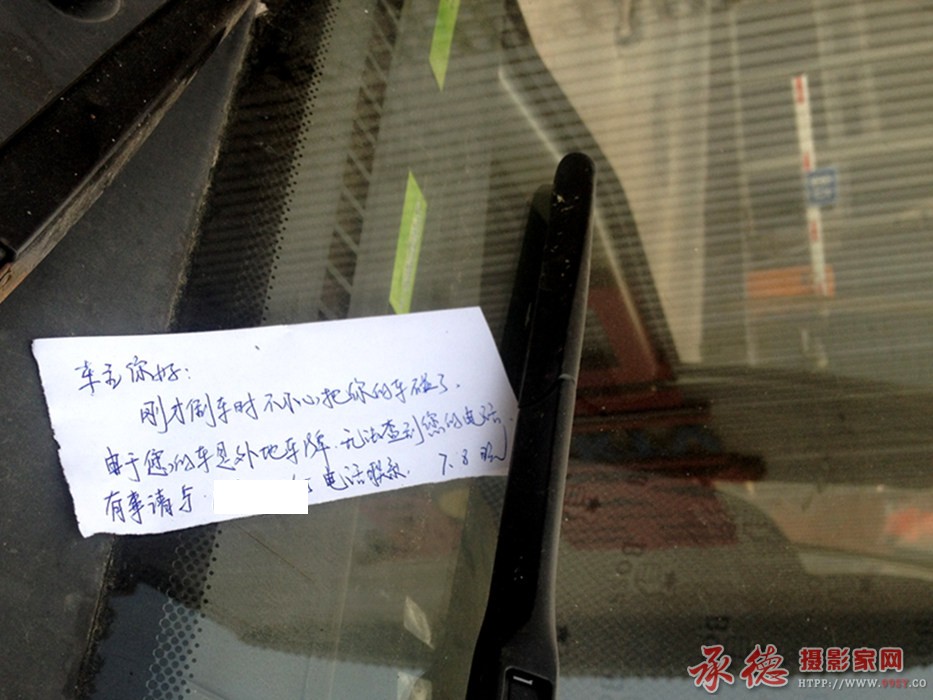 车主你好：
刚才倒车时不小心把你的车碰了.
由于您的车是外地车牌.无法查到您的电话.
有事请与 电话联系. 7.8
承德摄影家网
HTTP://WWW.